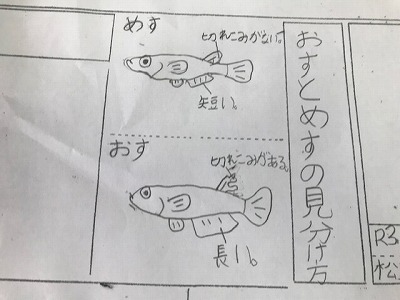 おすとめすの見分け方
めす
切れこみがない。
短い。
おす
切れこみがある。
長い。
R3
松